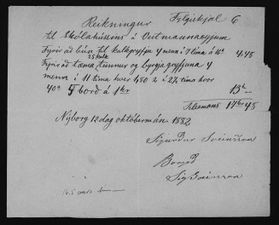 Reikningur Fylgiskjal 6
til Skólahússins á Vestmannaeyjum
Fyrir að búa til kalkgryfju 4 menn í 9 tíma á 4.45
Fyrir að tæma tunnur og byrgja gryfjuna 4
menn í 11 tíma hver
40 4 borð á 1 kr 13
Tilsamans 17 45
Nýborg 12 dag októbermán 1882
Sigurður Sveinsson
Borgað
Sig Sveinsson